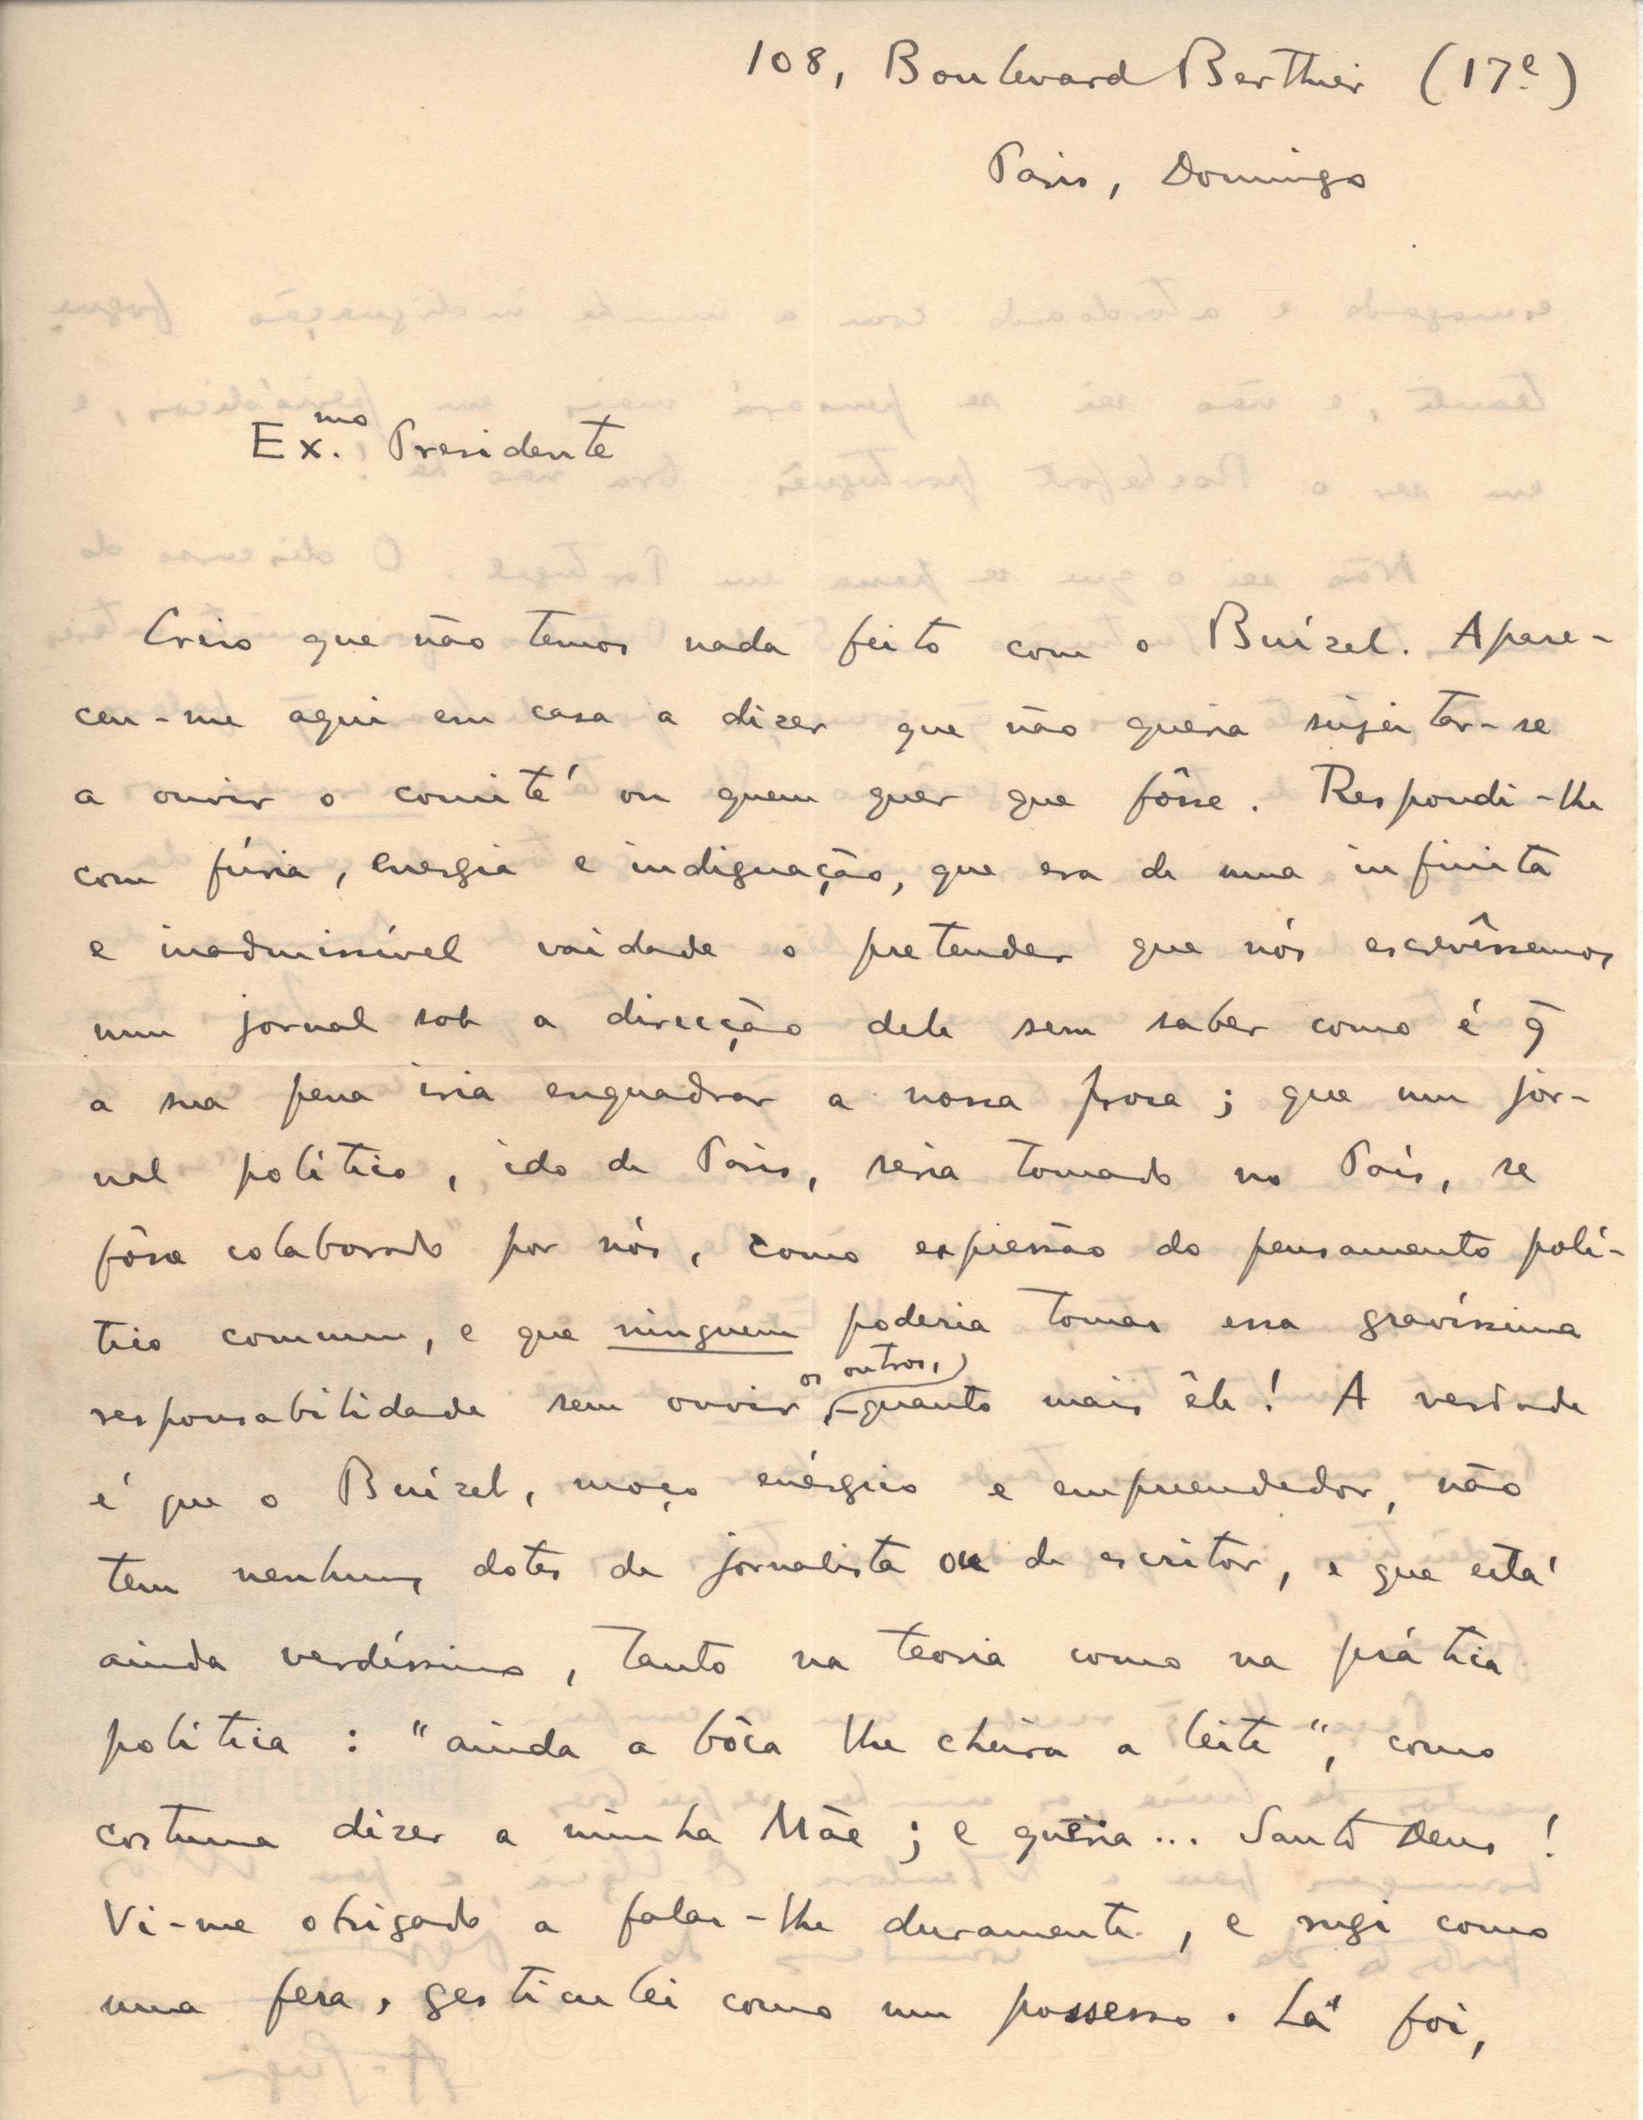 108, Boulevard Berthier (17e)
Paris, Domingo
Ex.mo Presidente
Creio que não temos nada feito com o Buízel. Apare-
ceu-me aqui em casa a dizer que não queria sujeitar-se
a ouvir o comité ou quem quer que fôsse. Respondi-lhe
com fúria, energia e indignação, que era de uma infinita
e inadmissível vaidade o pretender que nós escrevêssemos
num jornal sob a direcção dele sem saber como é q̃
a sua pena iria enquadrar a nossa prosa; que um jor-
nal político, ido de Paris, seria tomado no País, se
fôsse colaborado por nós, como expressão do pensamento polí-
tico comum, e que ninguem poderia tomar essa gravíssima
responsabilidade sem ouvir os outros, – quanto mais êle! A verdade
é que o Buízel, moço enérgico e empreendedor, não
tem nenhuns dotes de jornalista ou de escritor, e que está
ainda verdíssimo, tanto na teoria como na prática
política: "ainda a bôca lhe cheira a leite", como
costuma dizer a minha Mãe; e queria... Santo Deus!
Vi-me obrigado a falar-lhe duramente, e rugi como
uma fera, gesticulei como um possesso. Lá foi,